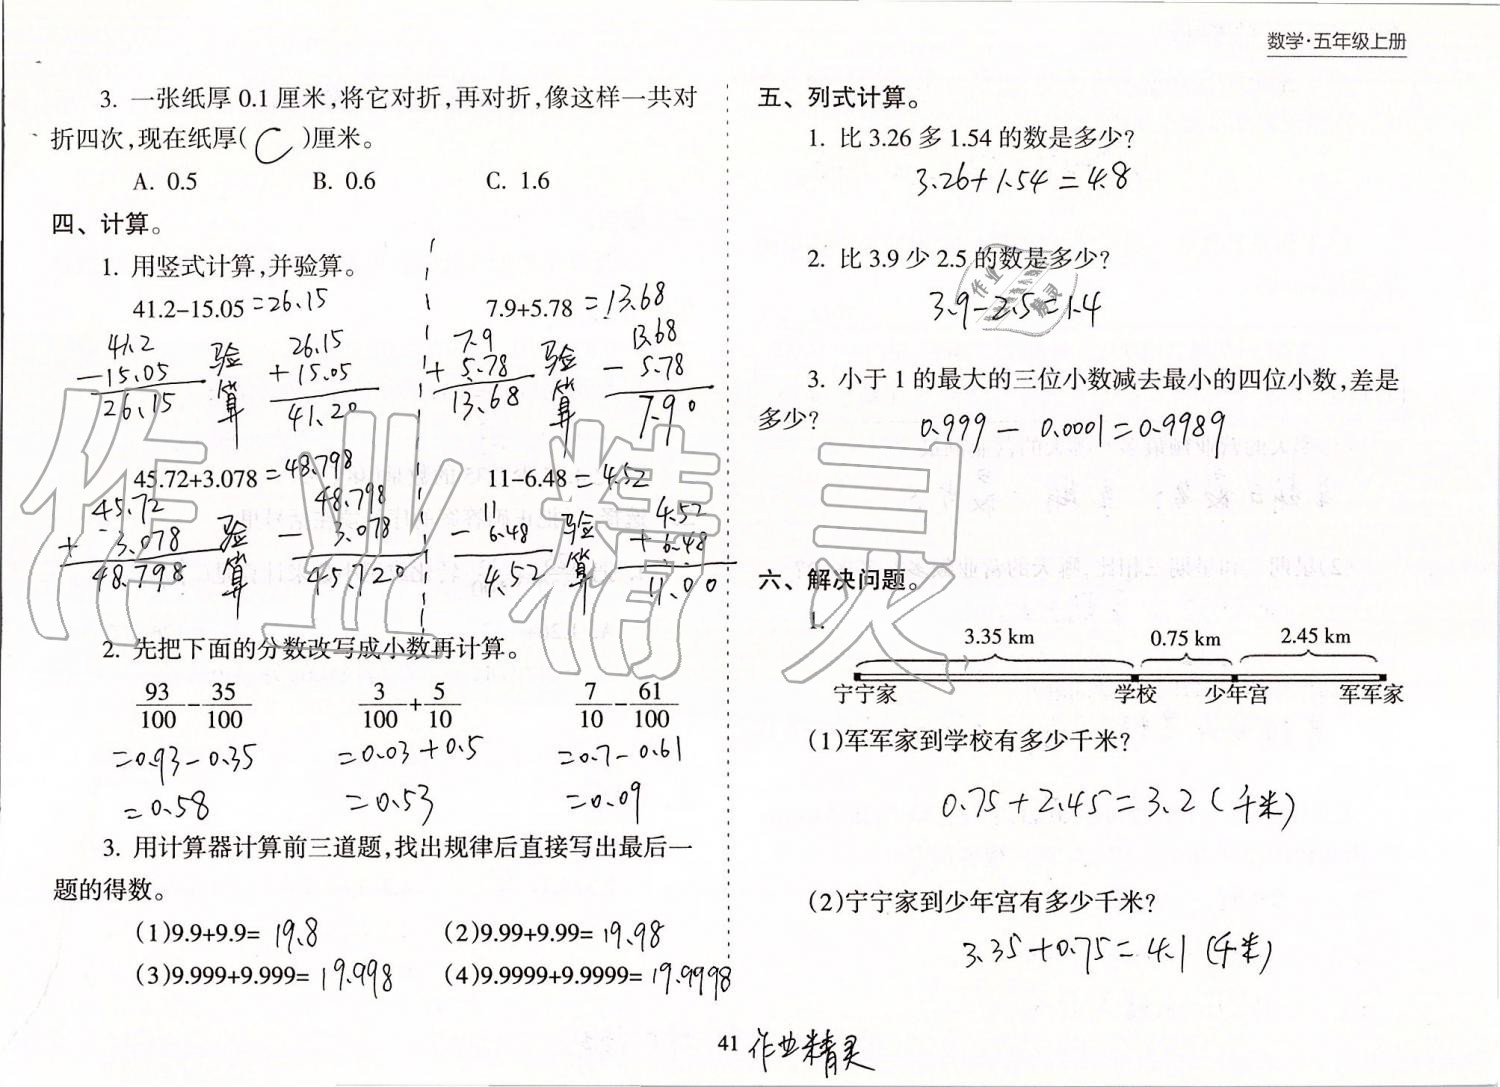 数学·五年级上册
3. 一张纸厚 0.1 厘米,将它对折,再对折,像这样一共对
折四次,现在纸厚( C )厘米。
A. 0.5 B. 0.6 C. 1.6
四、计算。
1. 用竖式计算,并验算。
41.2-15.05=26.15 7.9+5.78=13.68
41.2 验 26.15 7.9 验 13.68
-15.05 算 +15.05 +5.78 算 -5.78
26.15 41.20 13.68 7.90
45.72+3.078=48.798 11-6.48=4.52
45.72 验 48.798 11 验 4.52
+3.078 算 -3.078 -6.48 算 +6.48
48.798 45.720 4.52 11.00
2. 先把下面的分数改写成小数再计算。
93/100-35/100 3/100+5/10 7/10-61/100
=0.93-0.35 =0.03+0.5 =0.7-0.61
=0.58 =0.53 =0.09
3. 用计算器计算前三道题,找出规律后直接写出最后一
题的得数。
(1)9.9+9.9=19.8 (2)9.99+9.99=19.98
(3)9.999+9.999=19.998 (4)9.9999+9.9999=19.9998
五、列式计算。
1. 比 3.26 多 1.54 的数是多少?
3.26+1.54=4.8
2. 比 3.9 少 2.5 的数是多少?
3.9-2.5=1.4
3. 小于 1 的最大的三位小数减去最小的四位小数,差是
多少?
0.999-0.0001=0.9989
六、解决问题。
1.
3.35 km 0.75 km 2.45 km
宁宁家 学校 少年宫 军军家
(1)军军家到学校有多少千米?
0.75+2.45=3.2(千米)
(2)宁宁家到少年宫有多少千米?
3.35+0.75=4.1(千米)
41 作业精灵
作业精灵
作业
精灵